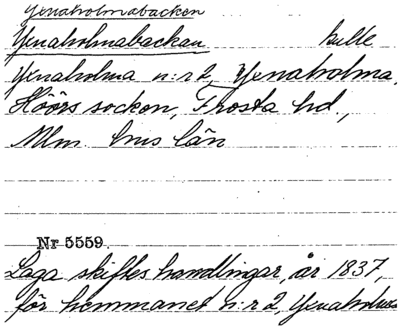 Yenaholmabacken
Yenaholmabackan kulle
Yenaholma n:r 2, Yenaholma,
Höörs socken, Frosta hd.,
Mlm. hus län
Nr 5559.
Laga skifteshandlingar, år 1837,
för hemmanet n:r 2, Yenaholma